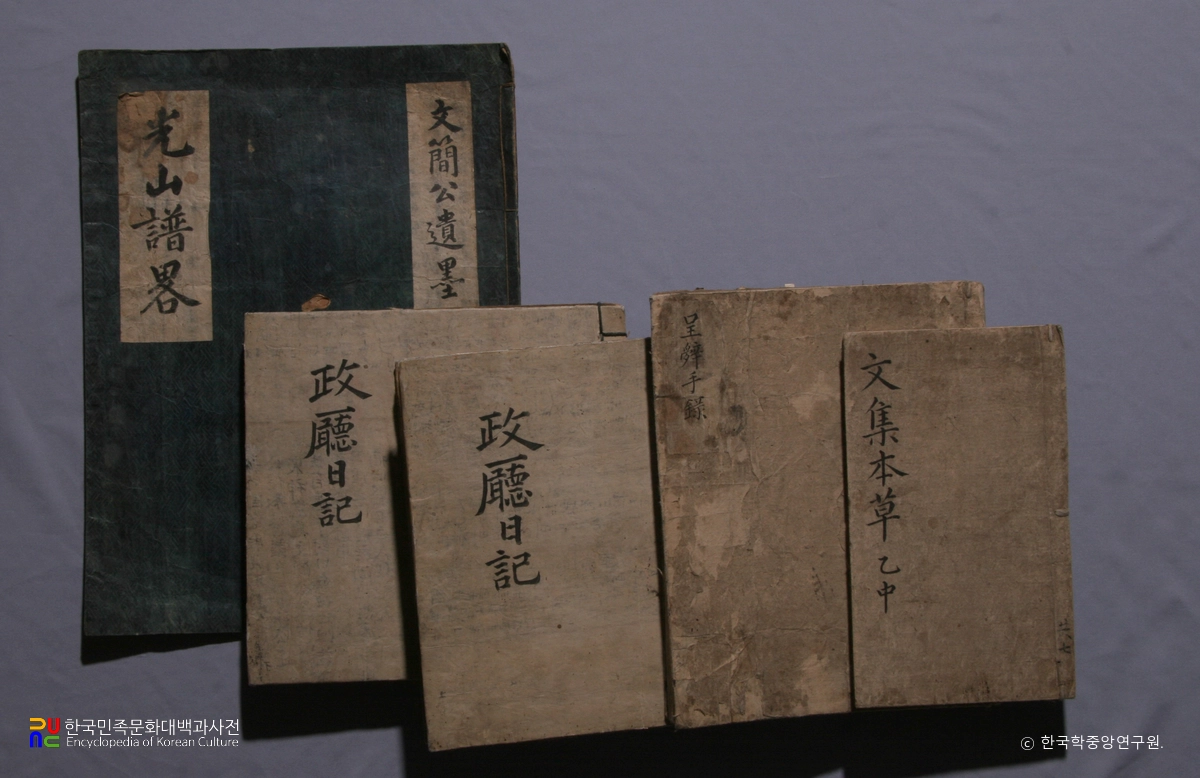 光山譜畧
文簡公遺墨
政廳日記
政廳日記
呈辭手錄
文集本草 乙中
共七
한국민족문화대백과사전
Encyclopedia of Korean Culture
ⓒ 한국학중앙연구원.